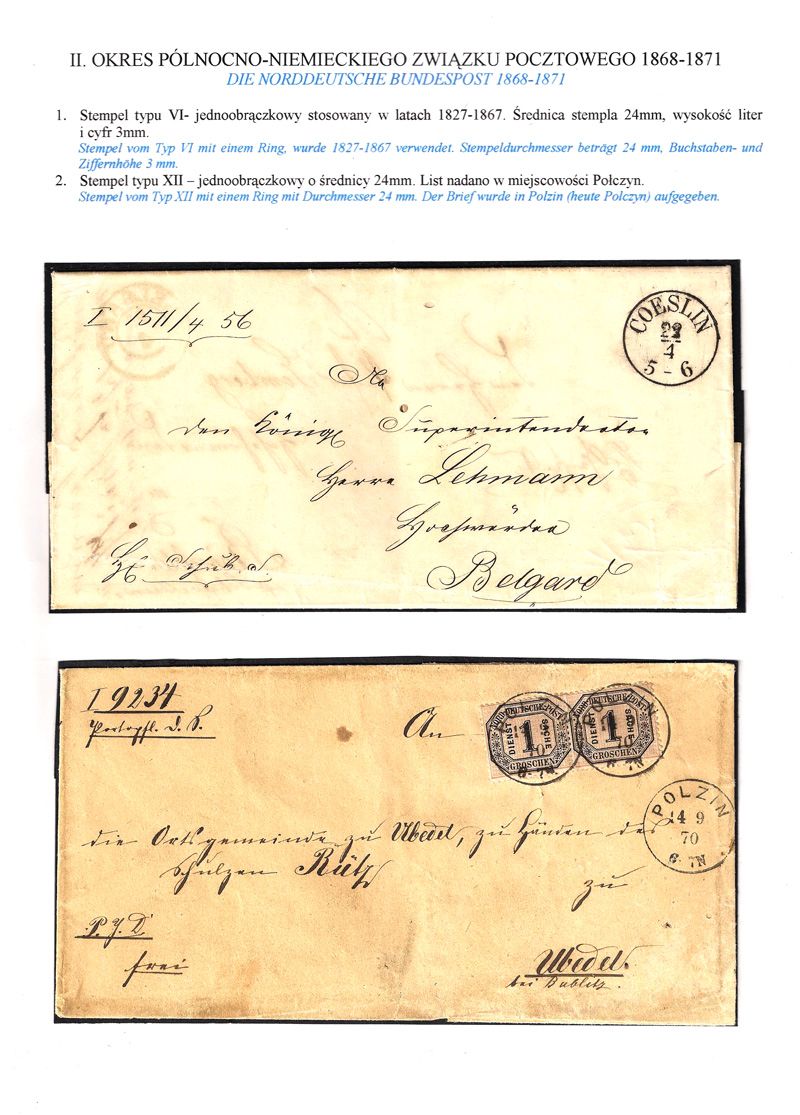 II. OKRES PÓLNOCNO-NIEMIECKIEGO ZWIĄZKU POCZTOWEGO 1868-1871
DIE NORDDEUTSCHE BUNDESPOST 1868-1871
1. Stempel typu VI- jednoobrączkowy stosowany w latach 1827-1867. Średnica stempla 24mm, wysokość liter
i cyfr 3mm.
Stempel vom Typ VI mit einem Ring, wurde 1827-1867 verwendet. Stempeldurchmesser beträgt 24 mm, Buchstaben- und
Ziffernhöhe 3 mm.
2. Stempel typu XII – jednoobrączkowy o średnicy 24mm. List nadano w miejscowości Połczyn.
Stempel vom Typ XII mit einem Ring mit Durchmesser 24 mm. Der Brief wurde in Polzin (heute Polczyn) aufgegeben.
I 1511/4 56
COESLIN
22
4
5 - 6
den Königl Superintendenten
Herrn Lehmann
Hochwürden
Belgard
I 9234
Portopfl. D. S.
An
NORDDEUTSCHE POST
DIENST 1 SACHE
GROSCHEN
NORDDEUTSCHE POST
DIENST 1 SACHE
GROSCHEN
POLZIN
14 9
70
6-7N
die Ortsgemeinde zu Ubedel, zu Händen des
Schulzen Rütz
zu
P. J. D.
frei
Ubedel.
bei Bublitz.